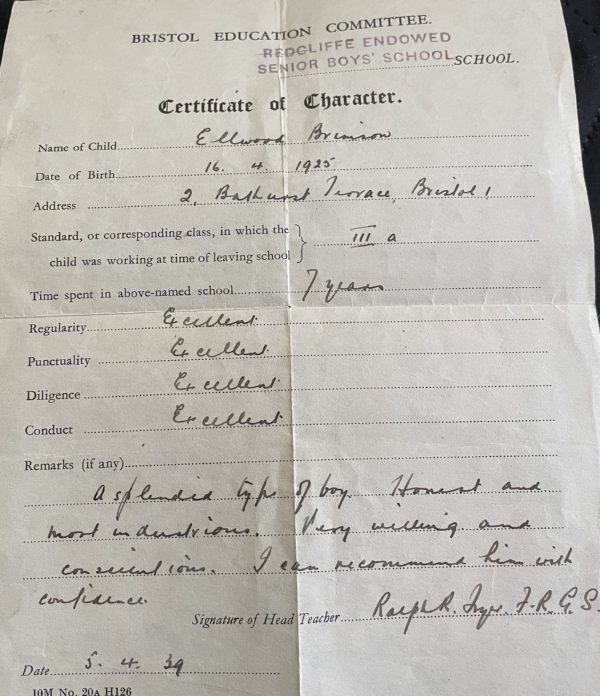 BRISTOL EDUCATION COMMITTEE.
REDCLIFFE ENDOWED
SENIOR BOYS' SCHOOL SCHOOL.
Certificate of Character.
Name of Child Ellwood Brimson
Date of Birth 16. 4. 1925
Address 2, Bathurst Terrace, Bristol 1
Standard, or corresponding class, in which the
child was working at time of leaving school } III a
Time spent in above-named school 7 years
Regularity Excellent
Punctuality Excellent
Diligence Excellent
Conduct Excellent
Remarks (if any)
A splendid type of boy. Honest and
most industrious. Very willing and
conscientious. I can recommend him with
confidence.
Signature of Head Teacher Ralph R. F.R.G.S.
Date 5. 4. 39
10M No. 20A H126